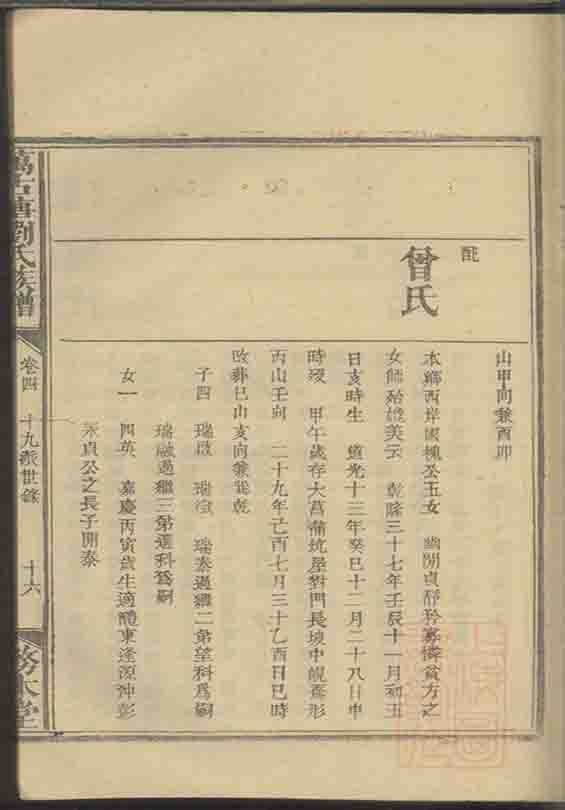 山甲向兼酉卯
配
曾氏
本鄉西岸國槐公五女 幽閒貞靜矜寡憐貧方之
女師姆儀美云 乾隆三十七年壬辰十一月初五
日亥時生 道光十三年癸巳十二月二十八日申
時歿 甲午歲存大菖蒲坑屋對門長埌中峴形
丙山壬向 二十九年己酉七月三十乙酉日巳時
改葬巳山亥向兼巽乾
子四 瑞啟 瑞徵 瑞泰過繼二弟望科為嗣
瑞融過繼三弟選科為嗣
女一 四英 嘉慶丙寅歲生適醴東逢源沖彭
永貞公之長子開泰
萬石塘劉氏族譜
卷四 十九派世錄
十六
務本堂